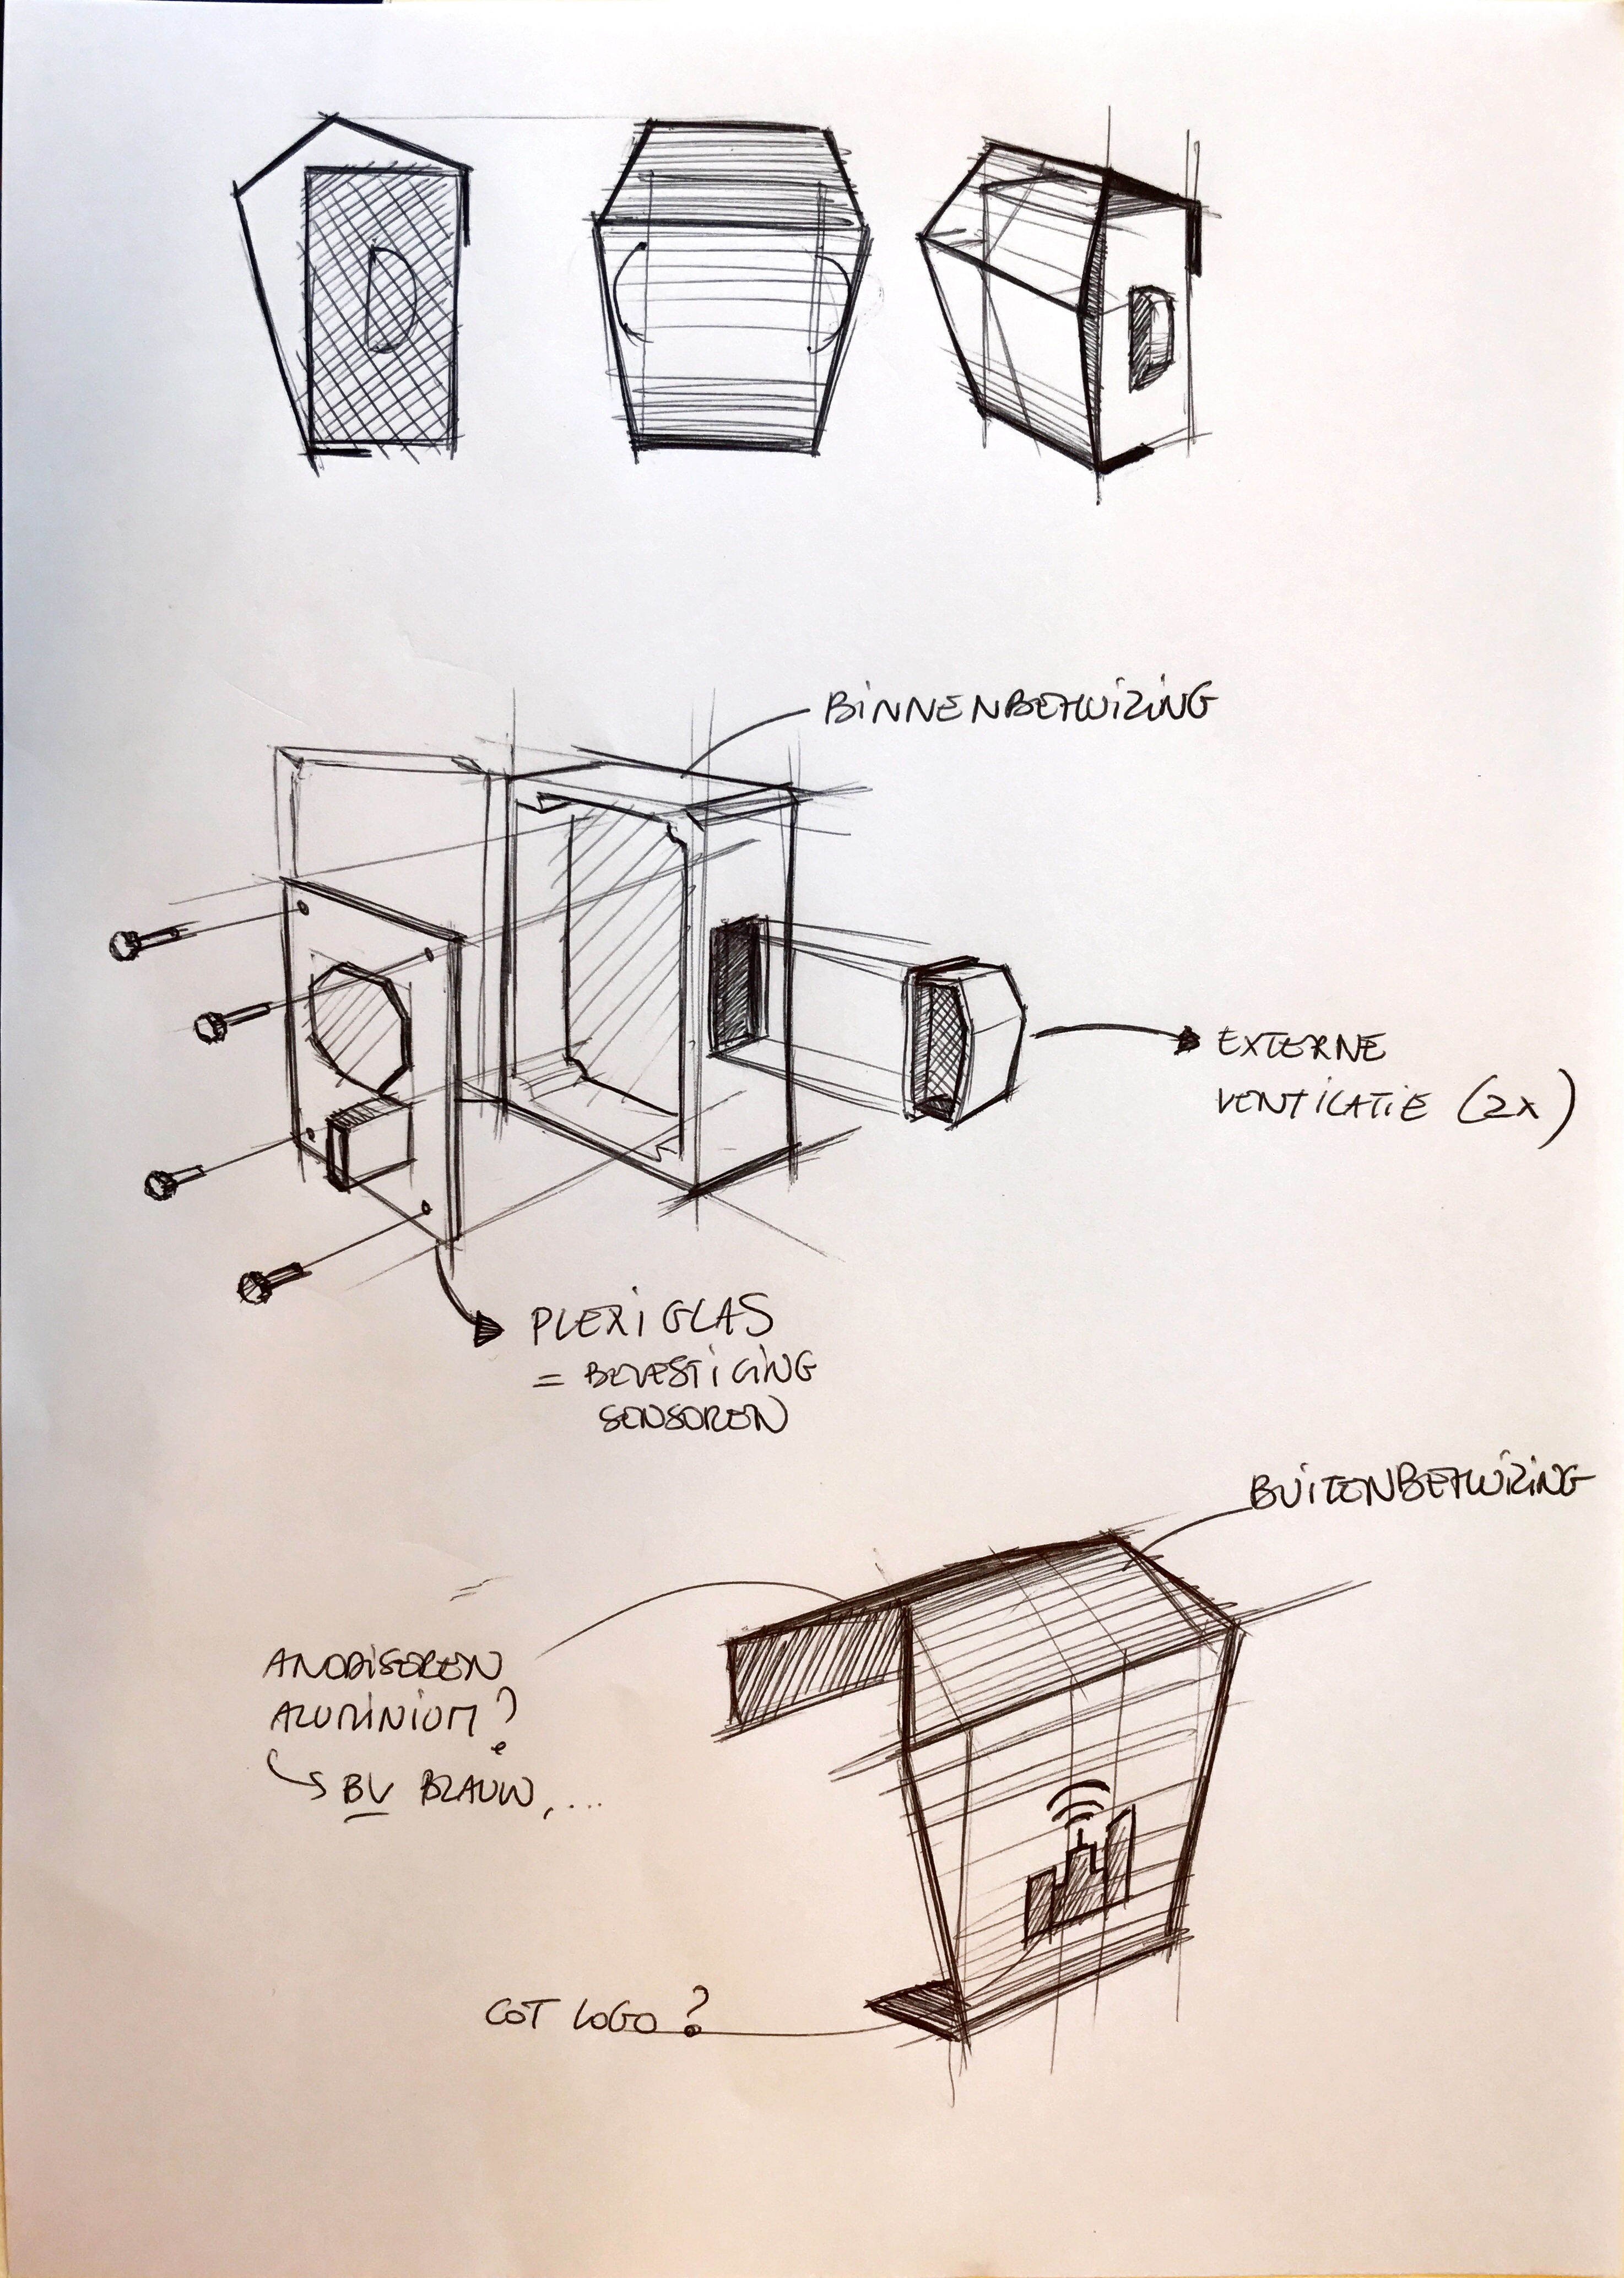 BINNENBEHUIZING
EXTERNE
VENTILATIE (2x)
PLEXIGLAS
= BEVESTIGING
SENSOREN
BUITENBEHUIZING
ANODISEREN
ALUMINIUM?
BV BLAUW, ...
COT LOGO?